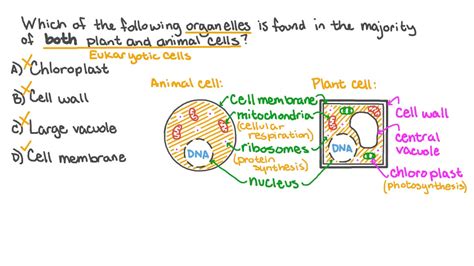 Which of the following organelles is found in the majority
of both plant and animal cells?
Eukaryotic cells
A) Chloroplast
B) Cell wall
C) Large vacuole
D) Cell membrane
Animal cell:
Plant cell:
Cell membrane
mitochondria
(cellular
respiration)
ribosomes
(protein
synthesis)
nucleus
DNA
DNA
Cell wall
central
vacuole
chloroplast
(photosynthesis)